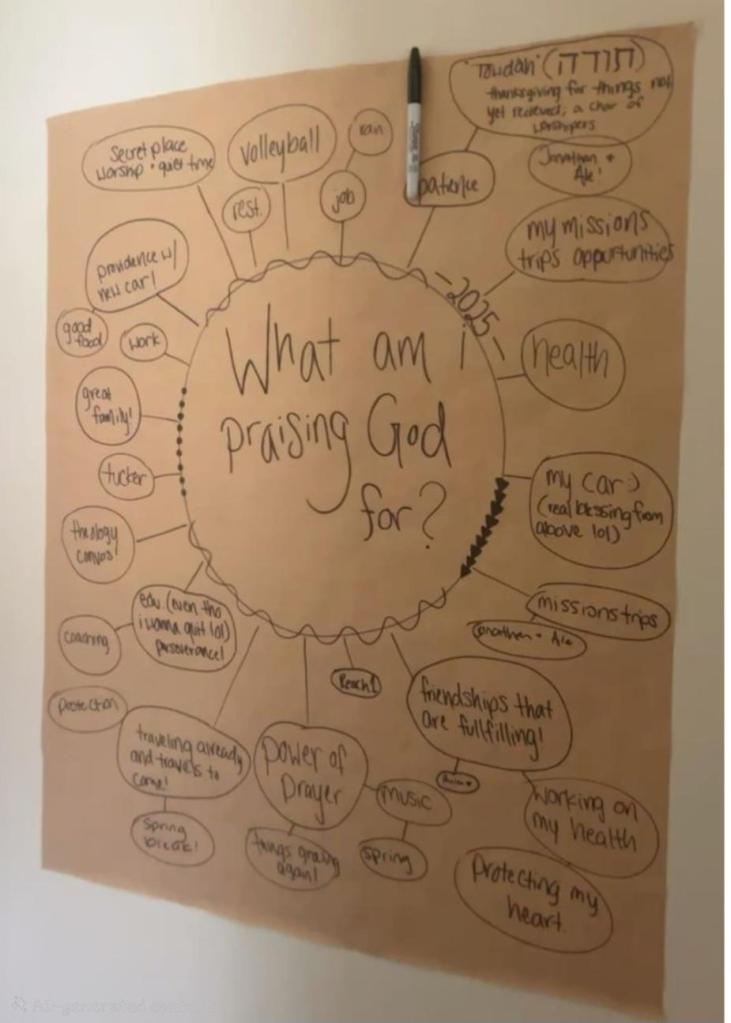 "Towdah" (תודה)
thanksgiving for things not
yet recieved; a choir of
worshipers
Secret place
worship + quiet time
volleyball
rain
rest.
job
patience
Jonathan +
Ale!
my missions
trips opportunities
providence w/
new car!
-2025-
good
food
work
What am i
praising God
for?
health
great
family!
tucker
my car :)
(real blessing from
above lol)
theology
convos!
edu. (even tho
i wanna quit lol)
perseverance!
missions trips
Jonathan + Ale
coaching
Reach!
friendships that
are fullfilling!
protection
traveling already
and travels to
come!
power of
prayer
music
working on
my health
spring
break!
things growing
again!
spring
protecting my
heart.
AI-generated